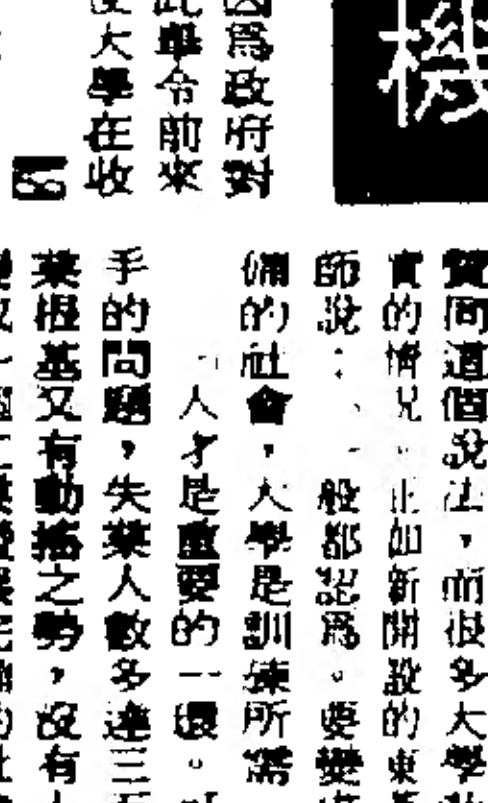 機
因爲政府對
此舉令前來
大學在收
贊同這個說法，而很多大學
實的情況。正如新開設的東
師說：「一般都認爲。要變
備的社會，大學是訓練所需
「人才是重要的一環。
手的問題，失業人數多達三
業根基又有動搖之勢，沒有